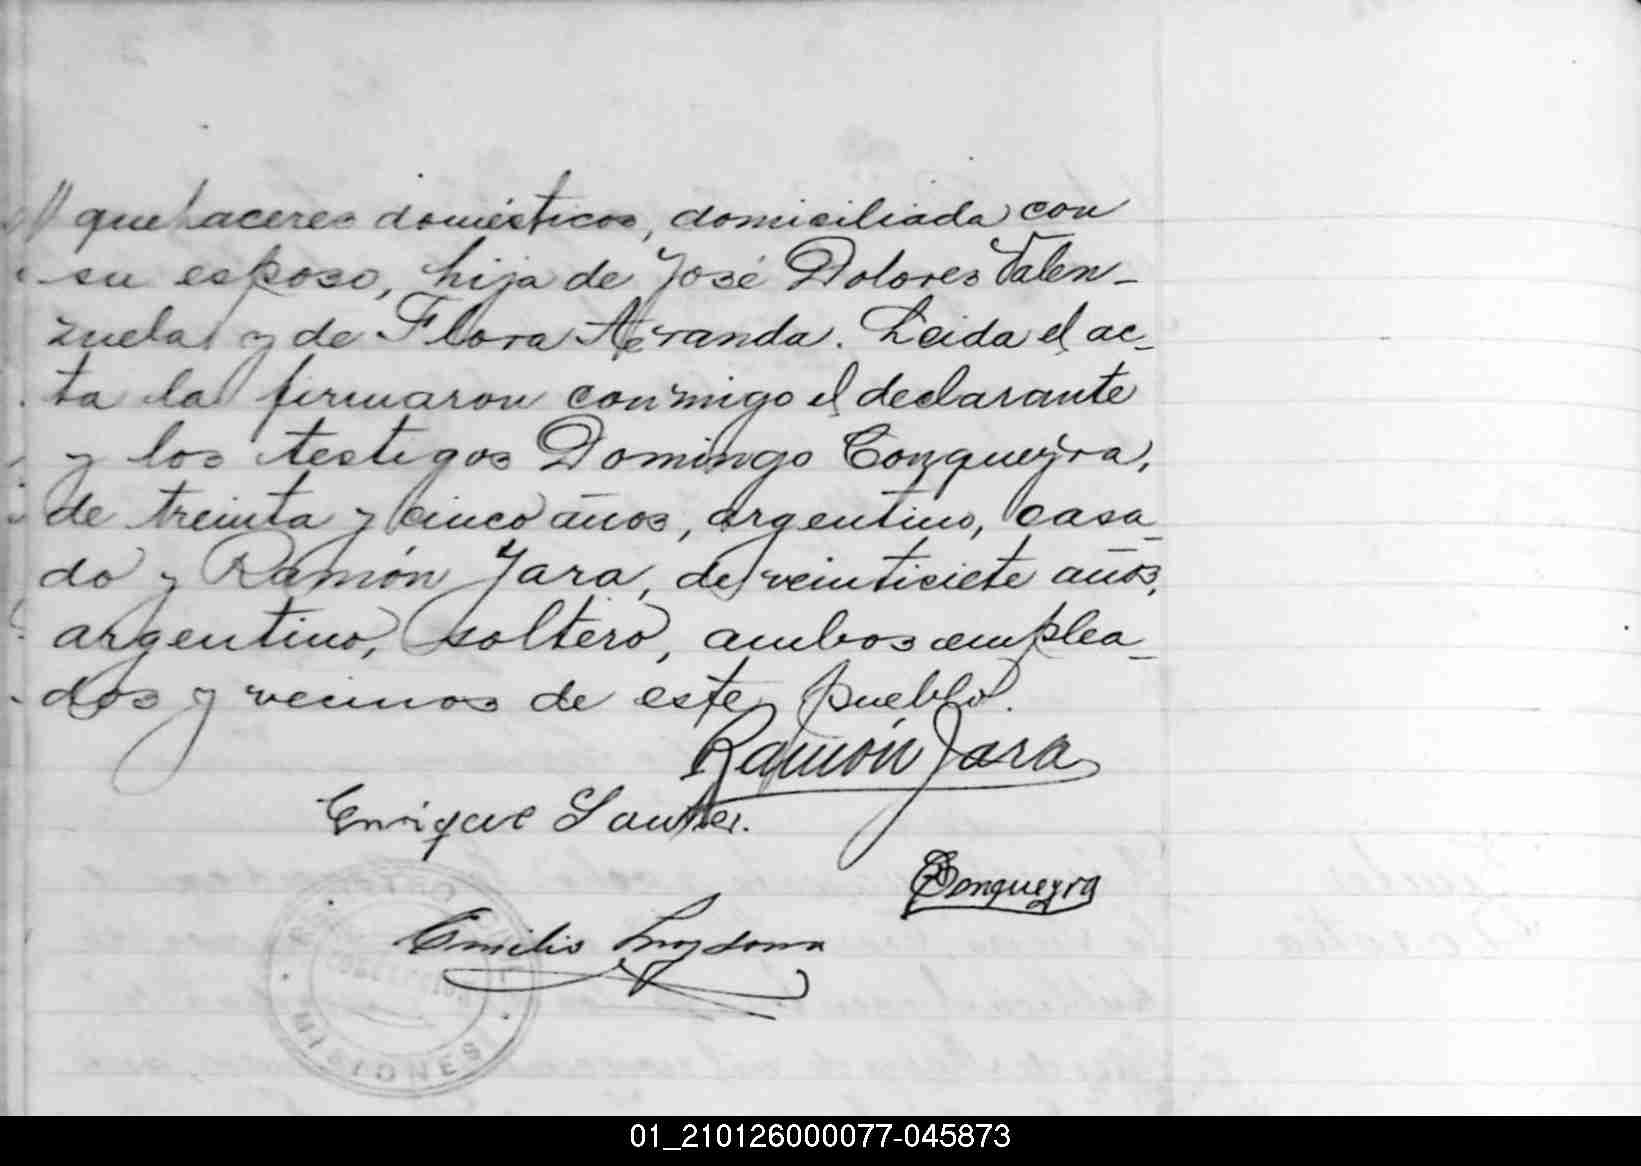 quehaceres domésticos, domiciliada con
su esposo, hija de José Dolores Valen-
zuela y de Flora Aranda. Leida el ac-
ta la firmaron conmigo el declarante
y los testigos Domingo Conqueyra,
de treinta y cinco años, argentino, casa-
do y Ramón Jara, de veintisiete años,
argentino, soltero, ambos emplea-
dos y vecinos de este pueblo.
Ramón Jara
Enrique
Conqueyra
Emilio
REGISTRO
MISIONES
01_210126000077-045873